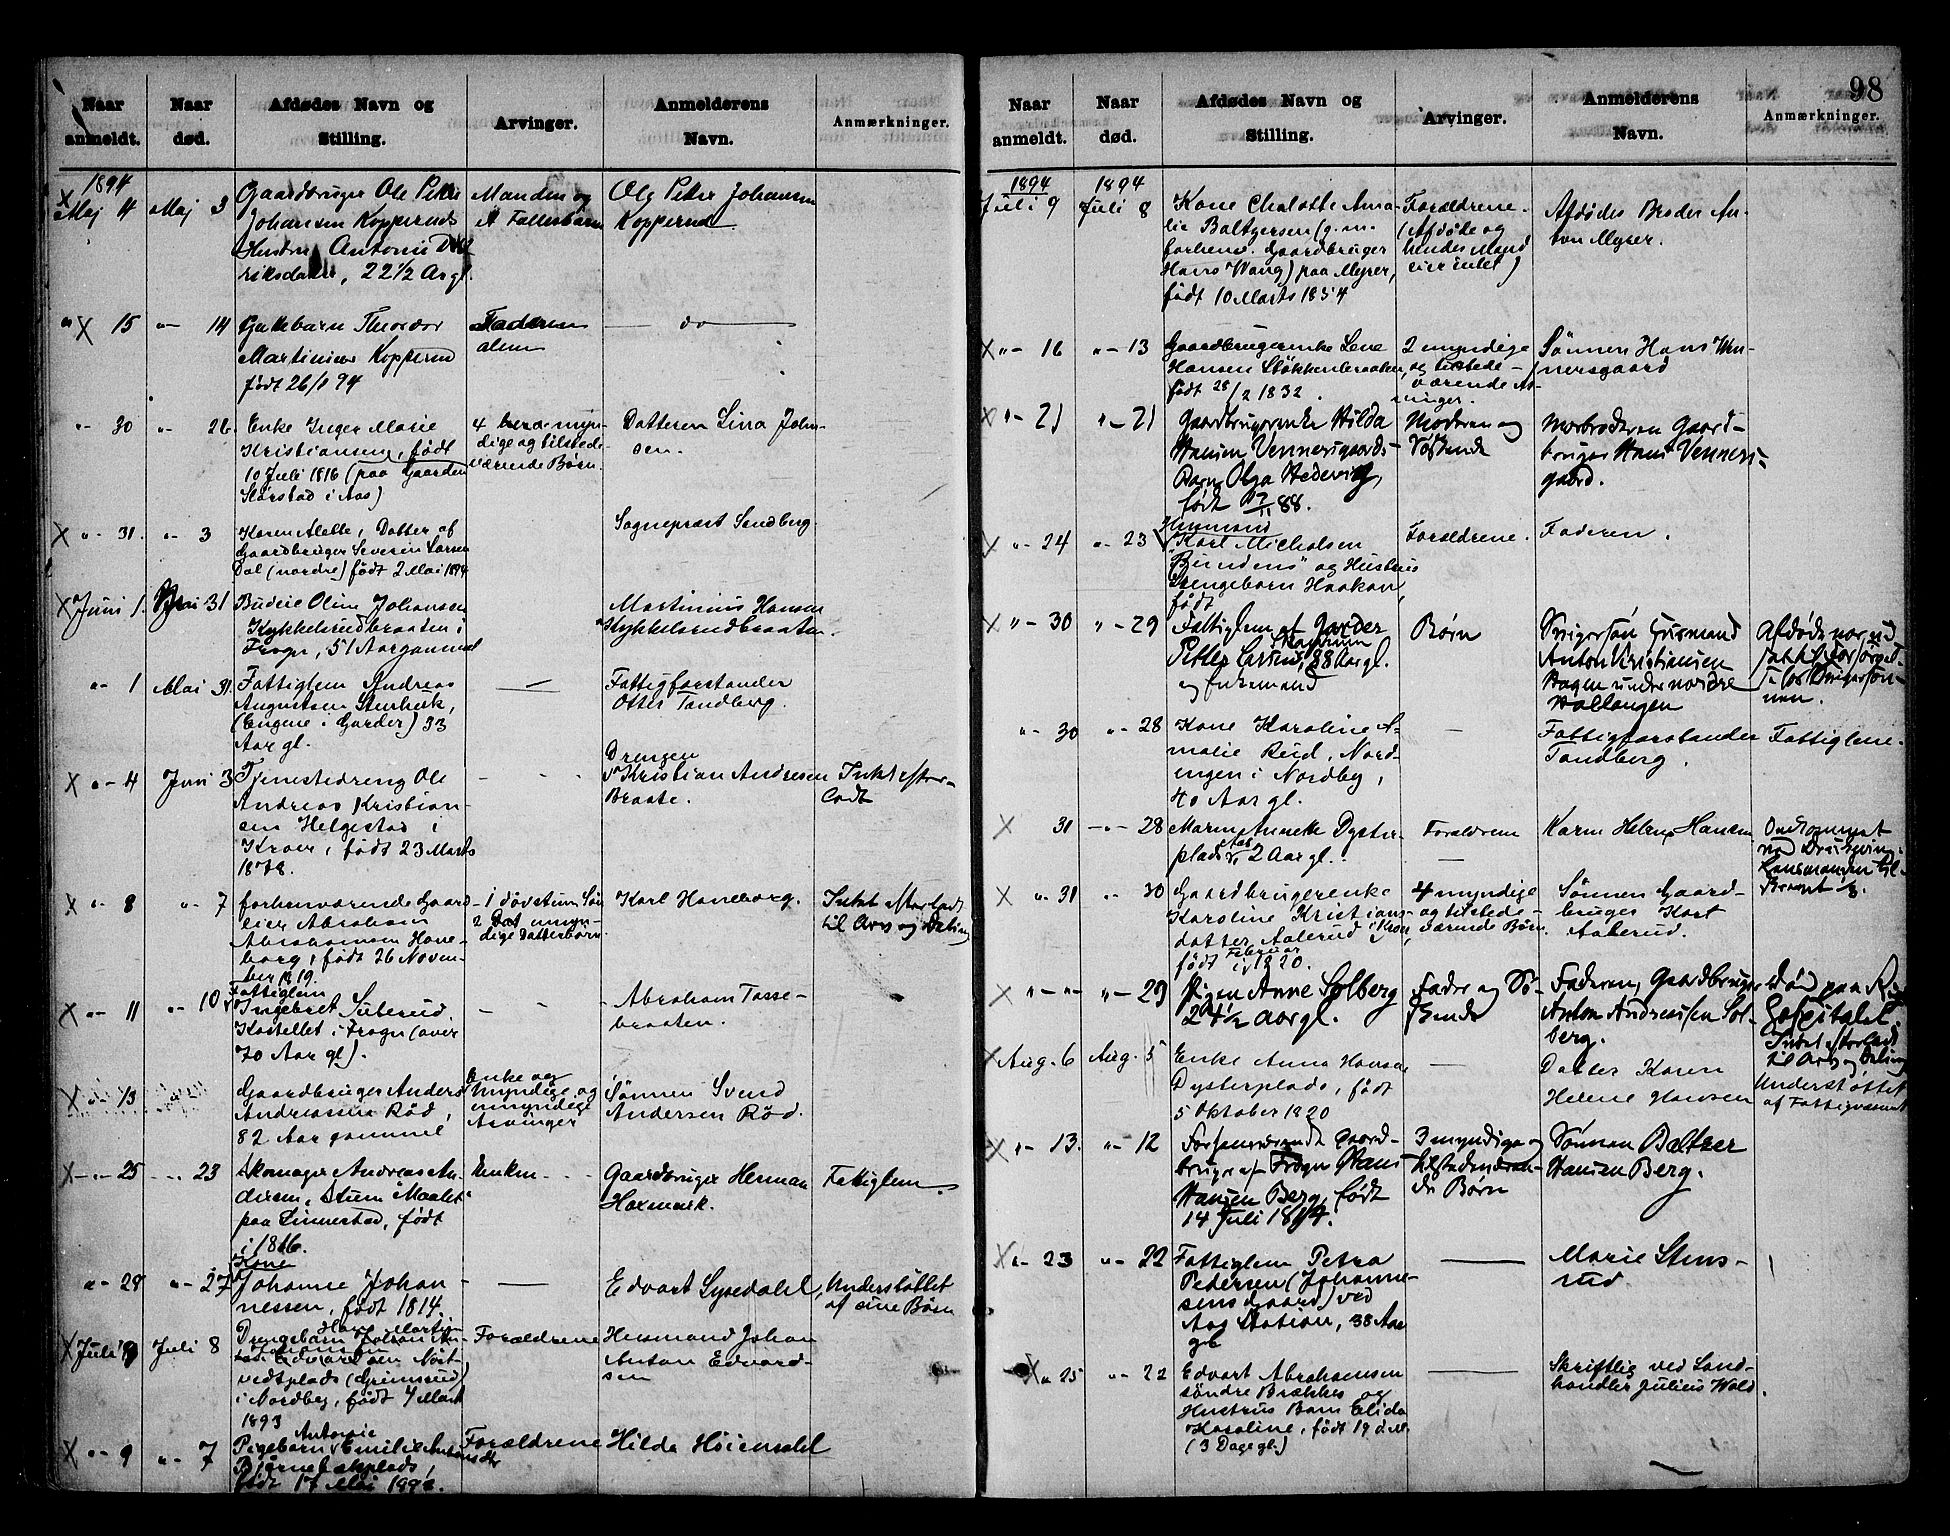 98
Naar anmeldt.
Naar død.
Afdødes Navn og Stilling.
Arvinger.
Anmelderens Navn.
Anmærkninger.
1894
Maj 4
Maj 3
Gaardbruger Ole Peter
Johansen Kopperuds
Hustru Antonie
22½ Aar gl.
Manden og
Fællesbarn
Ole Peter Johansen
Kopperud
" 15
" 14
Martinius Kopperud
født 26/ 94
Faderen
alene
do
" 30
" 26
Enke Inger Marie
Kristiansen, født
10 Juli 1816 (paa Gaarden
i Aas)
4 myn-
dige og tilstede-
værende Børn
Datteren Lina Johan-
sen.
" 31.
" 3
Karen Alette, Datter af
Gaardbruger Severin Larsen
Dal (nordre) født 2 Mai 1894
Sogneprest Sandberg
Juni 1.
Mai 31
Budeie Oline Johansen
Kykkelsrudbraaten i
Frogn, 51 Aar gammel
Martinius Hansen
Kykkelsrudbraaten.
" 1
Mai 31.
Fattiglem Andreas
Augustsen
(Engene i Garder) 33
Aar gl.
Fattigforstander
Otter Tandberg.
" 4
Juni 3
Tjenestedreng Ole
Andreas Kristian-
sen Helgestad i
Kroer, født 23 Marts
1878.
Drengen
Kristian Andresen
Braate.
Intet efter-
ladt
" 8
" 7
forhenværende Gaard-
eier Abraham
Abrahamsen Hone-
borg, født 26 Novem-
ber 1819.
1 døvstum Søn
2 umyn-
dige Datterbørn
Karl Honeborg.
Intet efterladt
til Arv og Deling
" 11
" 10
Fattiglem
Ingebret
Kastellet i Frogn (over
70 Aar gl).
Abraham Tasse-
braaten.
" 13
Gaardbruger Anders
Andreassen Rød,
82 Aar gammel
Enke og
myndige og
umyndige
Arvinger
Sønnen Svend
Andersen Rød.
" 25
" 23
Skomager Andreas An-
dersen,
paa Linnestad, født
i 1816.
Enken
Gaardbruger Herman
Haxmark.
Fattiglem.
" 28
" 27
Kone
Johanne Johan-
nessen, født 1814.
Edvart Lysedahl,
Understøttet
af sine Børn
Juli 9
Juli 8
Drengebarn
i Nordby, født 4 Mart
1893
Forældrene
Husmand Johan
Anton Edvard-
sen
" 9
" 7
Antonie
Pigebarn Emilie
født 17 Mai
Forældrene
Hilda Høiendahl
Naar anmeldt.
Naar død.
Afdødes Navn og Stilling.
Arvinger.
Anmelderens Navn.
Anmærkninger.
1894
1894
Juli 9
Juli 8
Kone Chalotte Ama-
lie Baltzersen (g.m.
forhenv. Gaardbruger
Hans Wang) paa Myrer,
født 10 Marts 1854
Forældrene.
(Afdøde og
hendes Mand
eier intet)
Afdødes Broder An-
ton Myrer.
" 16
" 13
Gaardbrugerenke Lene
Hansen Støkkenbraaten,
født 28/2 1832.
2 myndige
og tilstede-
værende Ar-
vinger.
Sønnen Hans Wen-
nersgaard
" 21
" 21
Gaardbrugerenke Hilda
Hansen Vennersgaards
Barn Olga Hedevig,
født /11 88.
Moderen og
Søskende
Morbroderen Gaard-
bruger Hans Venners-
gaard.
" 24
" 23
Husmand
Karl Michalsen
og Hustrus
Drengebarn Haakon,
født
Forældrene.
Faderen.
" 30
" 29
Fattiglem af Garder
Petter Larsen, 88 Aar gl.
og Enkemand
Børn
Svigersøn Husmand
Anton Kristiansen
Hagen under nordre
Hallangen
Afdøde
forsørget
" 30
" 28
Kone Karoline A-
malie Rud, Nord-
engen i Nordby,
40 Aar gl.
Fattigforstander
Tandberg.
Fattiglem.
31
" 28
Maren Annette Dyster-
plads, 2 Aar gl.
Forældrene
Karen Helene Hansen
Omkommet
ved Drukning.
Lensmanden
" 31
" 30
Gaardbrugerenke
Karoline Kristians-
datter Aalerud i Kroer,
født i Februar 1820.
4 myndige
og tilstede-
værende Børn
Sønnen Gaard-
bruger Karl
Aalerud.
" "
" 29
Pigen Anne Solberg
24½ Aar gl.
Fader og Sø-
skende
Faderen, Gaardbruger
Anton Andreassen Sol-
berg.
død paa Rigs
Hospitalet,
Intet efterladt
til Arv og Deling
Aug. 6
Aug. 5
Enke Anna Hansen
Dysterplads, født
5 Oktober 1820
Datter Karen
Helene Hansen
Understøttet
af Fattigvæsenet
" 13.
" 12
Forhenværende Gaard-
bruger af Frogn Hans
Hansen Berg, født
14 Juli 1814.
3 myndige og
tilstedeværen-
de Børn
Sønnen Baltzer
Hansen Berg.
" 23
" 22
Fattiglem Petra
Pedersen (Johanne-
sensgaard) ved
Aas Station, 38 Aar
gl.
Marie Stens-
rud.
" 25
" 22
Edvart Abrahamsen
søndre Brækkes og
Hustrus Barn Elida
født 19 d.M.
(3 Dage gl.)
Skriftlig ved Land-
handler Julius Wold.